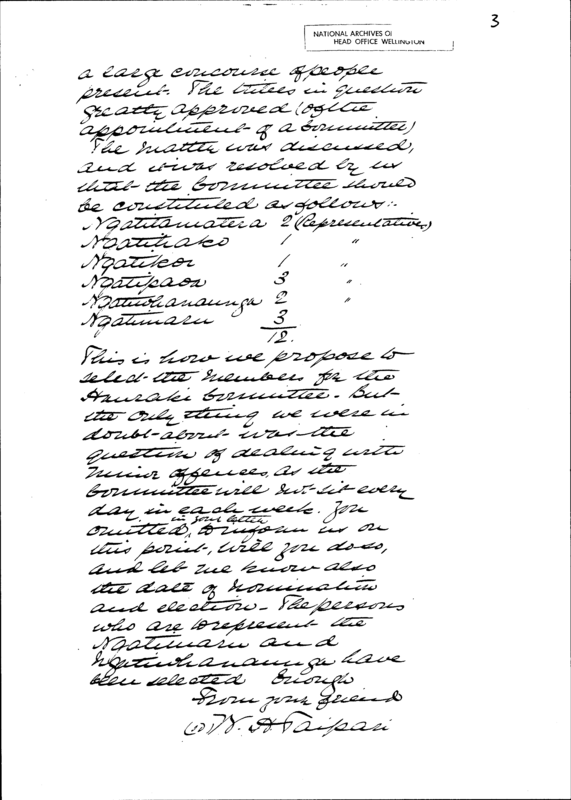 3
NATIONAL ARCHIVES OF
HEAD OFFICE WELLINGTON
a large concourse of people
present. The tribes in question
greatly approved (of the
appointment of a Committee)
The matter was discussed,
and it was resolved by us
that the Committee should
be constituted as follows:-
Ngatitamatera 2 (Representatives)
Ngatihako 1 "
Ngatikoi 1 "
Ngatipaoa 3 "
Ngatiwhanaunga 2 "
Ngatimaru 3
12.
This is how we propose to
select the members for the
Hauraki Committee. But
the only thing we were in
doubt about was the
question of dealing with
minor offences, as the
Committee will not sit every
day in each week. You
omitted in your letter to inform us on
this point, will you do so,
and let me know also
the date of nomination
and election. The persons
who are to represent the
Ngatimaru and
Ngatiwhanaunga have
been selected Enough
From your friend
W. H. Taipari